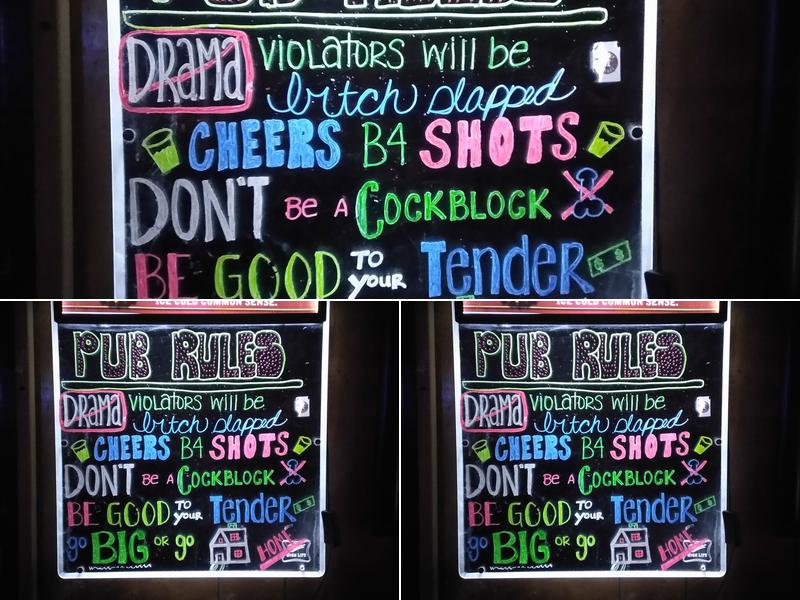 PUB RULES
DRAMA VIOLATORS WILL be
bitch slapped
CHEERS B4 SHOTS
DON'T Be A COCKBLOCK
BE GOOD TO YOUR Tender
ICE COLD COMMON SENSE.
PUB RULES
DRAMA VIOLATORS WILL be
bitch slapped
CHEERS B4 SHOTS
DON'T Be A COCKBLOCK
BE GOOD TO YOUR Tender
go BIG OR go HOME
HIGH LIFE
ICE COLD COMMON SENSE.
PUB RULES
DRAMA VIOLATORS WILL be
bitch slapped
CHEERS B4 SHOTS
DON'T Be A COCKBLOCK
BE GOOD TO YOUR Tender
go BIG OR go HOME
HIGH LIFE